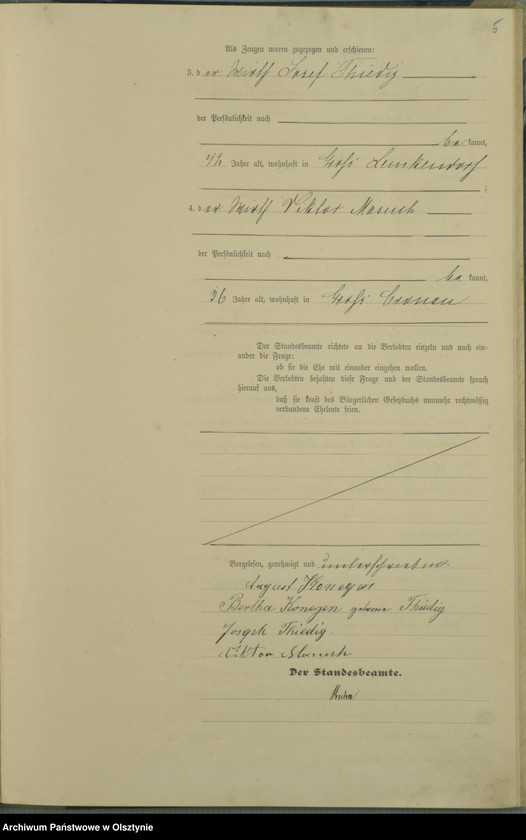 5
Als Zeugen waren zugezogen und erschienen:
3. der Wirth Josef Thiedig
der Persönlichkeit nach
be kannt,
42 Jahre alt, wohnhaft in Groß Lemkendorf
;
4. der Wirth Viktor Maruth
der Persönlichkeit nach
be kannt,
36 Jahre alt, wohnhaft in Groß Cronau
Der Standesbeamte richtete an die Verlobten einzeln und nach ein-
ander die Frage:
ob sie die Ehe mit einander eingehen wollen.
Die Verlobten bejahten diese Frage und der Standesbeamte sprach
hierauf aus,
daß sie kraft des Bürgerlichen Gesetzbuchs nunmehr rechtmäßig
verbundene Eheleute seien.
Vorgelesen, genehmigt und unterschrieben.
August Konegen
Bertha Konegen geborene Thiedig
Joseph Thiedig
Viktor
Der Standesbeamte.
Archiwum Państwowe w Olsztynie